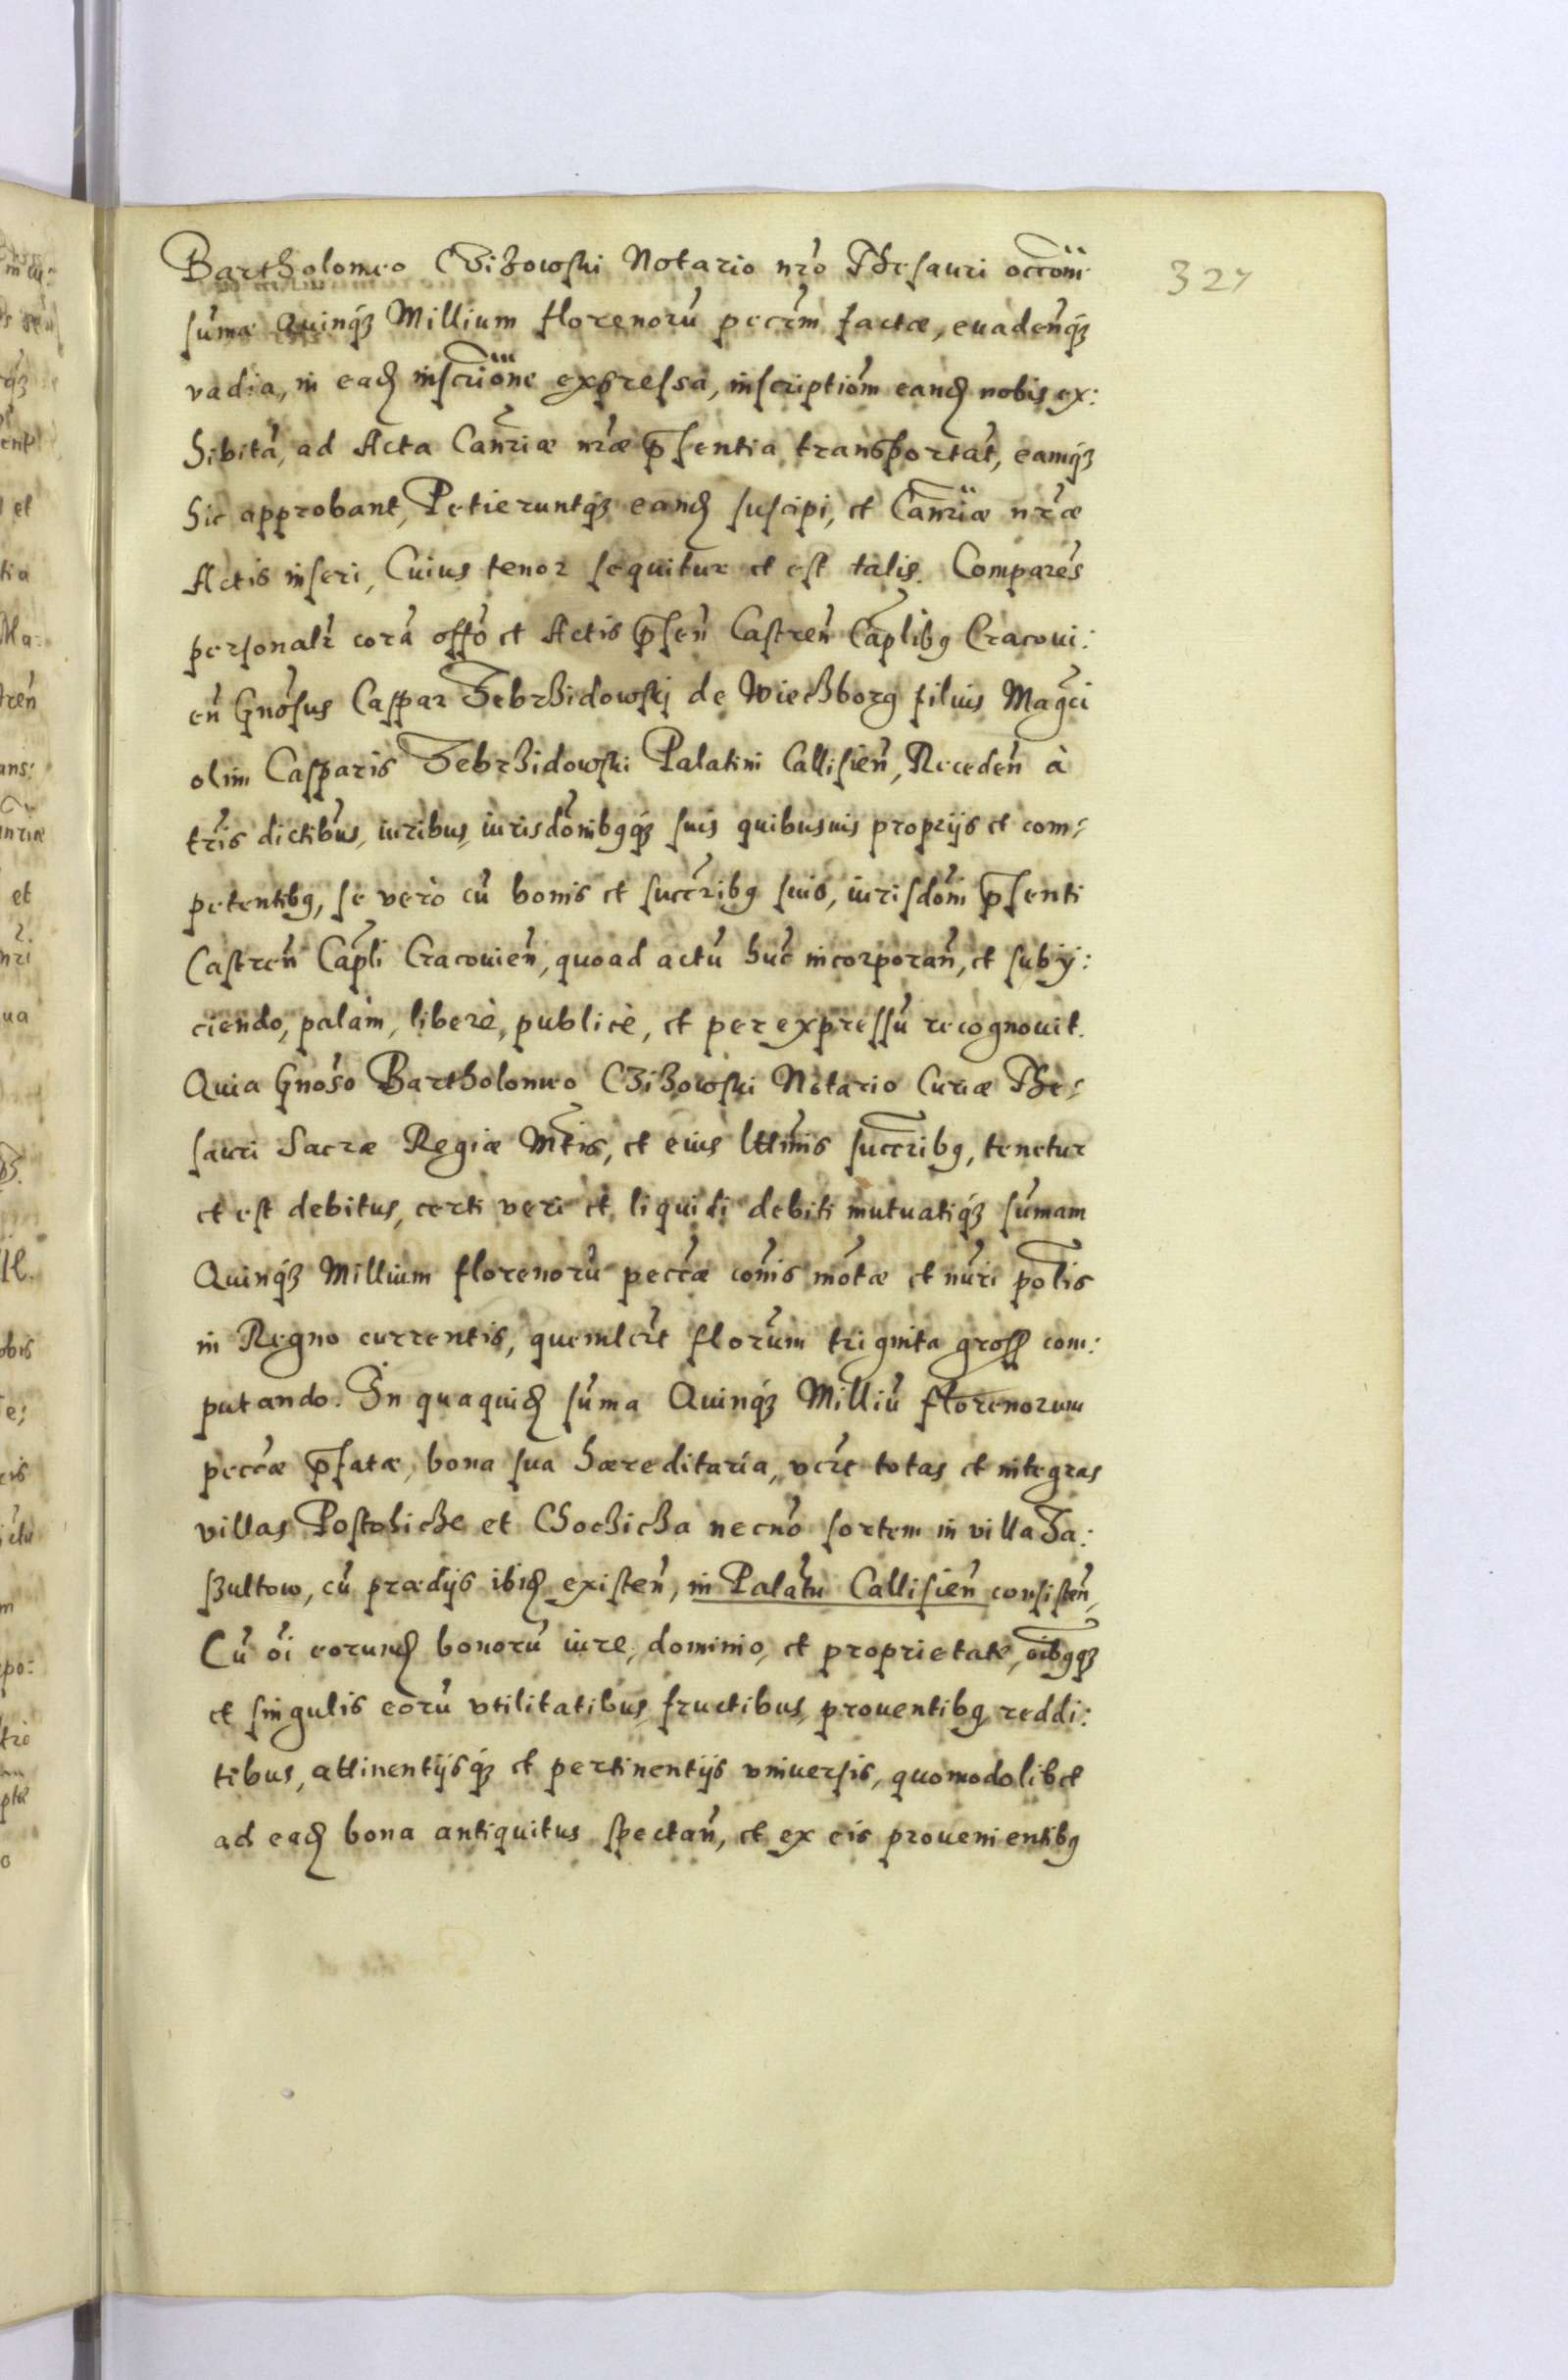 Bartholomeo Czizowski Notario nr̃o Thesauri occõni
sũmæ Quinq́ꝫ Millium florenorũ pecc̃m factæ, euadeñq́ꝫ
vadia, in eadꝫ inscriõne expressa, inscriptiõm eandꝫ nobis ex:
hibitã, ad Acta Canr̃iæ nr̃æ p̃sentia transportãt, eamq́ꝫ
hic approbant, Petieruntq́ꝫ eandꝫ suscipi, et Canr̃iæ nr̃æ
Actis inseri, Cuius tenor sequitur et est talis. Comparẽs
personalr̃ corã offõ et Actis p̃señ Castreñ Cap̃libꝰ Cracoui:
eñ Gnõsus Caspar Zebrzidowskj de Wiechborg filius Mag̃ci
olim Casparis Zebrzidowski Palatini Callisieñ, Recedeñ à
tr̃is dictibũs, iuribus, iurisdõnibꝰq́ꝫ suis quibusuis proprijs et com:
petentibꝰ, se verò cũ bonis et succr̃ibꝰ suis, iurisdõni p̃senti
Castreñ Cap̃li Cracouieñ, quoad actũ hũc incorporañ, et subij:
ciendo, palàm, liberè, publicè, et per expressũ recognouit.
Quia Gnõso Bartholomeo Czizowski Notario Curiæ The:
sauri Sacræ Regiæ Mt̃is, et eius lttĩmis succr̃ibꝰ, tenetur
et est debitus, certi veri et liquidi debiti mutuatiq́ꝫ sũmam
Quinq́ꝫ Millium florenorũ pecc̃æ coñis mõtæ et nũri põlis
in Regno currentis, quemlr̃t florũm triginta grosꝫ com:
putando. In quaquidꝫ sũma Quinq́ꝫ Milliũ florenorum
pecc̃æ p̃fatæ, bona sua hæreditaria, vcr̃t totas et integras
villas Postoliche et Chochicza necnõ sortem in villa Za:
szultow, cũ prædijs ibidꝫ existeñ, in Palãtu Callisieñ consisteñ,
Cũ õi eorundꝫ bonorũ iure, dominio, et proprietate, oĩbꝰq́ꝫ
et singulis eorũ vtilitatibus, fructibus, prouentibꝰ, reddi:
tibus, attinentijsq́ꝫ et pertinentijs vniuersis, quomodolibet
ad eadꝫ bona antiquitus spectañ, et ex eis prouenientibꝰ
327